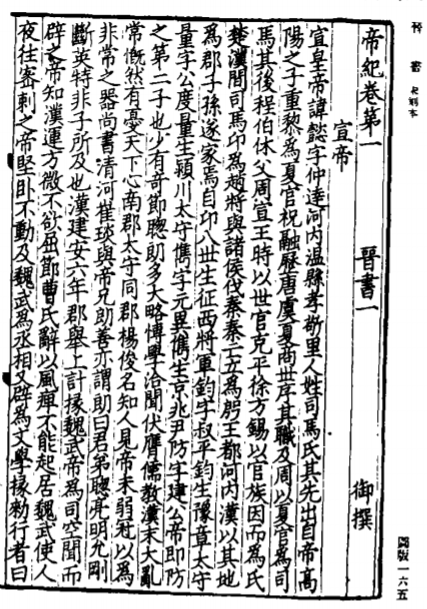 晉書
圖版一六五
帝紀卷第一 晉書一 御撰
宣帝
宣皇帝諱懿字仲達河内溫縣孝敬里人姓司馬氏其先出自帝高
陽之子重黎為夏官祝融歷唐虞夏商世序其職及周以夏官為司
馬其後程伯休父周宣王時以世官克平徐方錫以官族因而為氏
楚漢間司馬卬為趙將與諸侯伐秦秦亡立為殷王都河内漢以其地
為郡子孫遂家焉自卬八世生征西將軍鈞字叔平鈞生豫章太守
量字公度量生潁川太守儁字元異儁生京兆尹防字建公帝即防
之第二子也少有奇節聰朗多大略博學洽聞伏膺儒教漢末大亂
常慨然有憂天下心南郡太守同郡楊俊名知人見帝未弱冠以為
非常之器尚書清河崔琰與帝兄朗善亦謂朗曰君弟聰亮明允剛
斷英特非子所及也漢建安六年郡舉上計掾魏武帝為司空聞而
辟之帝知漢運方微不欲屈節曹氏辭以風痺不能起居魏武使人
夜往密刺之帝堅卧不動及魏武為丞相又辟為文學掾勑行者曰